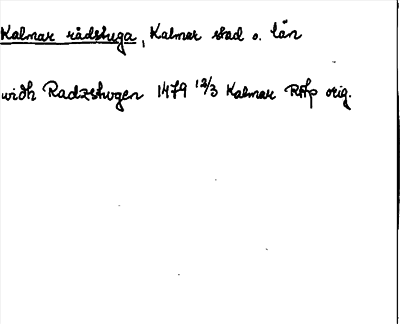 Kalmar rådstuga, Kalmar stad o. län
widh Radzstwgen 1479 12/3 Kalmar RAp orig.